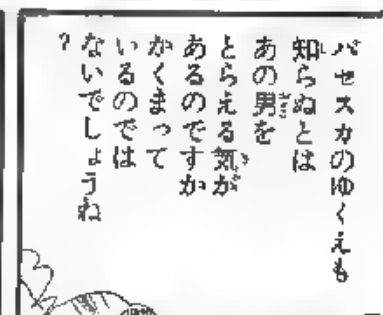 バセスカのゆくえも
知らぬとは
あの男を
とらえる気が
あるのですか
かくまって
いるのでは
ないでしょうね
?